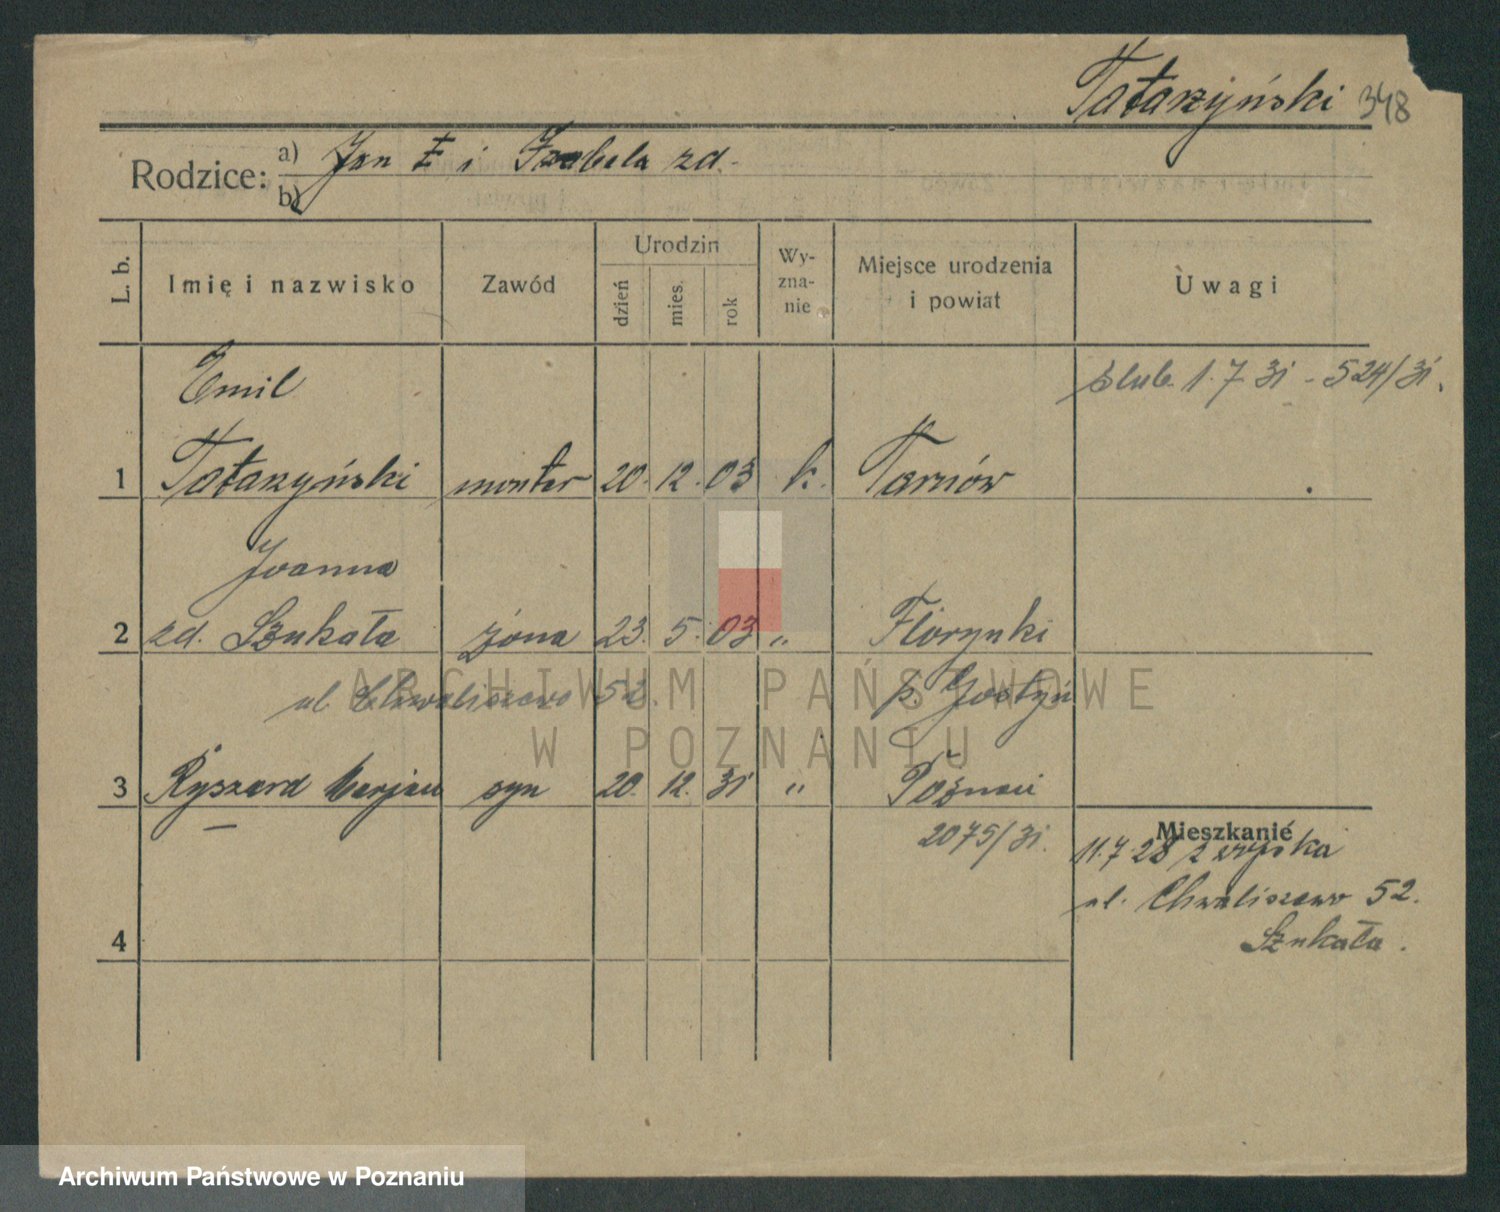 Tatarzyński 348
Rodzice: a) Jan Ł i Izabela zd.
b)
L. b.
Imię i nazwisko
Zawód
Urodzin
dzień
mies.
rok
Wy-
zna-
nie
Miejsce urodzenia
i powiat
Uwagi
Emil
ślub. 1. 7. 31 - 524/31.
1 Tatarzyński monter 20. 12. 03 k. Tarnów
Joanna
2 zd. Szukała żona 23. 5. 03 „ Florynki
ul. Chwaliszewo 52. p. Gostyń
ARCHIWUM PAŃSTWOWE
W POZNANIU
3 Ryszard Marjan syn 20. 12. 31 „ Poznań
2075/31.
Mieszkanie
11.7.28 z
ul. Chwaliszewo 52.
4 Szukała.
Archiwum Państwowe w Poznaniu